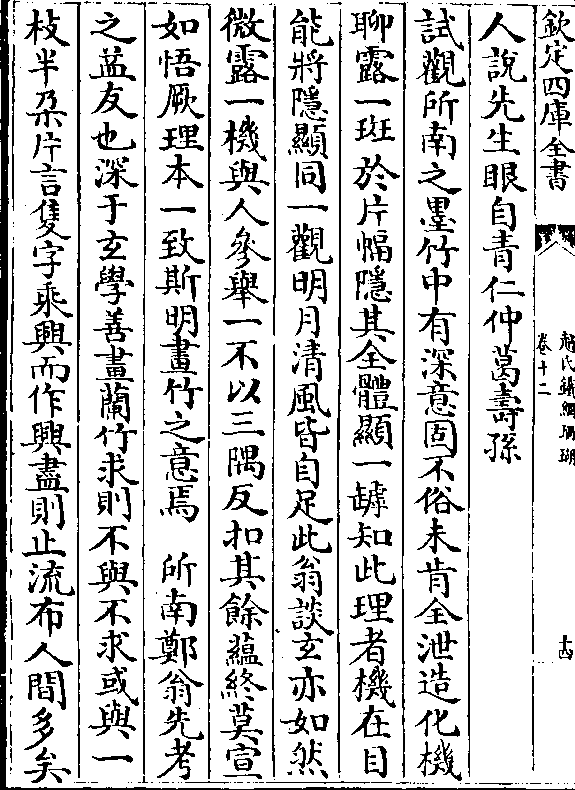 欽定四庫全書
趙氏鐵網珊瑚
卷十二
十四
人說先生眼自青仁仲葛壽孫
試觀所南之墨竹中有深意固不俗未肯全泄造化機
聊露一斑於片幅隱其全體顯一罅知此理者機在目
能將隱顯同一觀明月清風皆自足此翁談玄亦如然
微露一機與人參舉一不以三隅反扣其餘蘊終莫宣
如悟厥理本一致斯明畫竹之意焉　所南鄭翁先考
之益友也深于玄學善畫蘭竹求則不與不求或與一
枝半朶片言隻字乘興而作興盡則止流布人間多矣